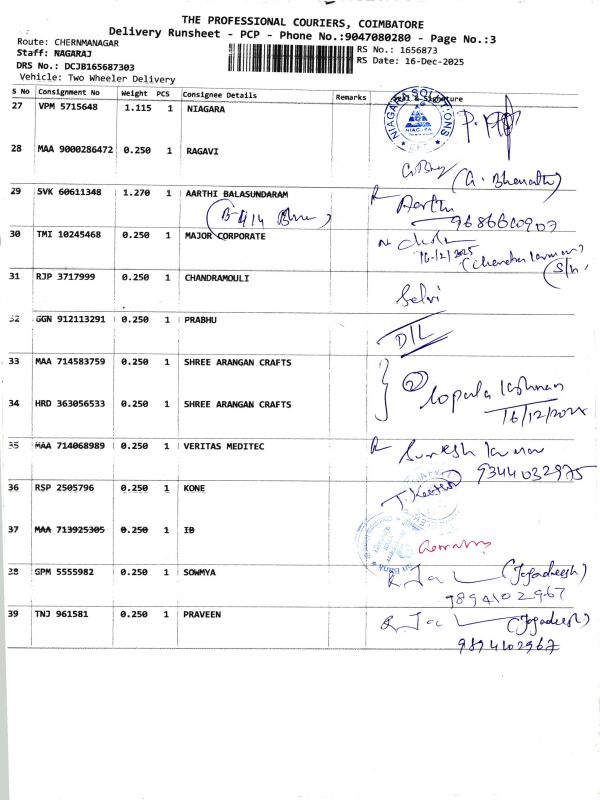 THE PROFESSIONAL COURIERS, COIMBATORE
Delivery Runsheet - PCP - Phone No.:9047080280 - Page No.:3
Route: CHERNMANAGAR
RS No.: 1656873
Staff: NAGARAJ
RS Date: 16-Dec-2025
DRS No.: DCJB165687303
Vehicle: Two Wheeler Delivery
S No Consignment No Weight PCS Consignee Details Remarks Seal & Signature
27 VPM 5715648 1.115 1 NIAGARA
NIAGARA SOLUTIONS
28 MAA 9000286472 0.250 1 RAGAVI
(G. Bharath)
29 SVK 60611348 1.270 1 AARTHI BALASUNDARAM
Aarthi
(B-414
30 TMI 10245468 0.250 1 MAJOR CORPORATE
16/12/2025
31 RJP 3717999 0.250 1 CHANDRAMOULI
Selvi
32 GGN 912113291 0.250 1 PRABHU
D/L
33 MAA 714583759 0.250 1 SHREE ARANGAN CRAFTS
②
34 HRD 363056533 0.250 1 SHREE ARANGAN CRAFTS
35 MAA 714068989 0.250 1 VERITAS MEDITEC
9344032975
36 RSP 2505796 0.250 1 KONE
37 MAA 713925305 0.250 1 IB
38 GPM 5555982 0.250 1 SOWMYA
(Jagadeesh)
9894102967
39 TNJ 961581 0.250 1 PRAVEEN
(Jagadeesh)
9894102967